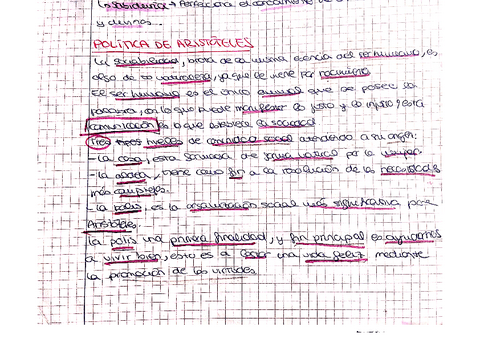 Sabiduría → Perfecciona el conocimiento de
y divinos...
POLÍTICA DE ARISTÓTELES
La sociabilidad, brota de la misma esencia del ser humano, es
algo de su naturaleza, ya que le viene por nacimiento
El ser humano es el único animal que posee la
palabra, con lo que puede manifestar lo justo y lo injusto y esta
comunicación es lo que establece la sociedad
Tres tipos niveles de comunidad social atendiendo a su origen:
- La casa, esta formada de forma natural por la
- La aldea, tiene como fin a la resolución de las necesidades
más complejas.
- La polis, es la organización social más significativa para
Aristóteles.
La polis una primera finalidad, y fin principal es ayudarnos
a vivir bien, esto es a llevar una vida feliz mediante
la promoción de las virtudes.